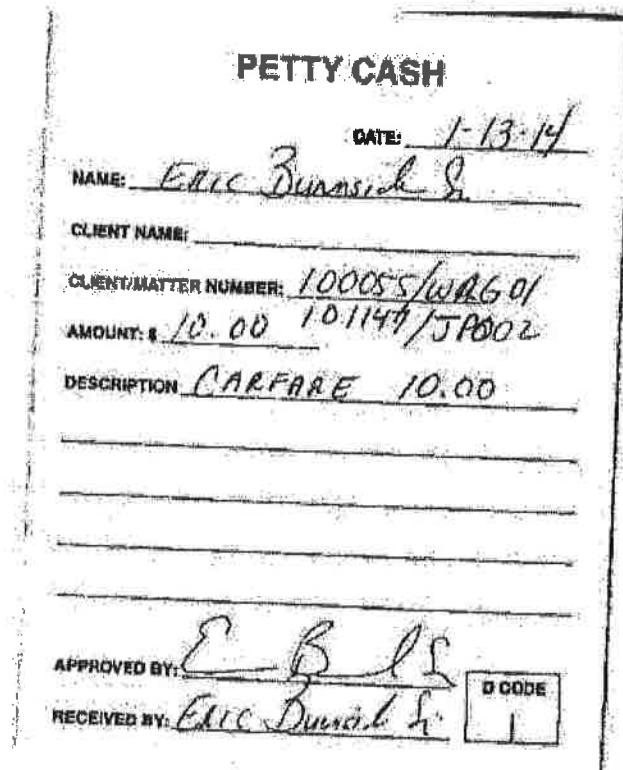 PETTY CASH
DATE: 1-13-14
NAME: Eric Burnside Sr.
CLIENT NAME:
CLIENT/MATTER NUMBER: 100055/WRG01
101147/JP002
AMOUNT: $ 10.00
DESCRIPTION CARFARE 10.00
APPROVED BY:
RECEIVED BY: Eric Burnside Sr.
D CODE